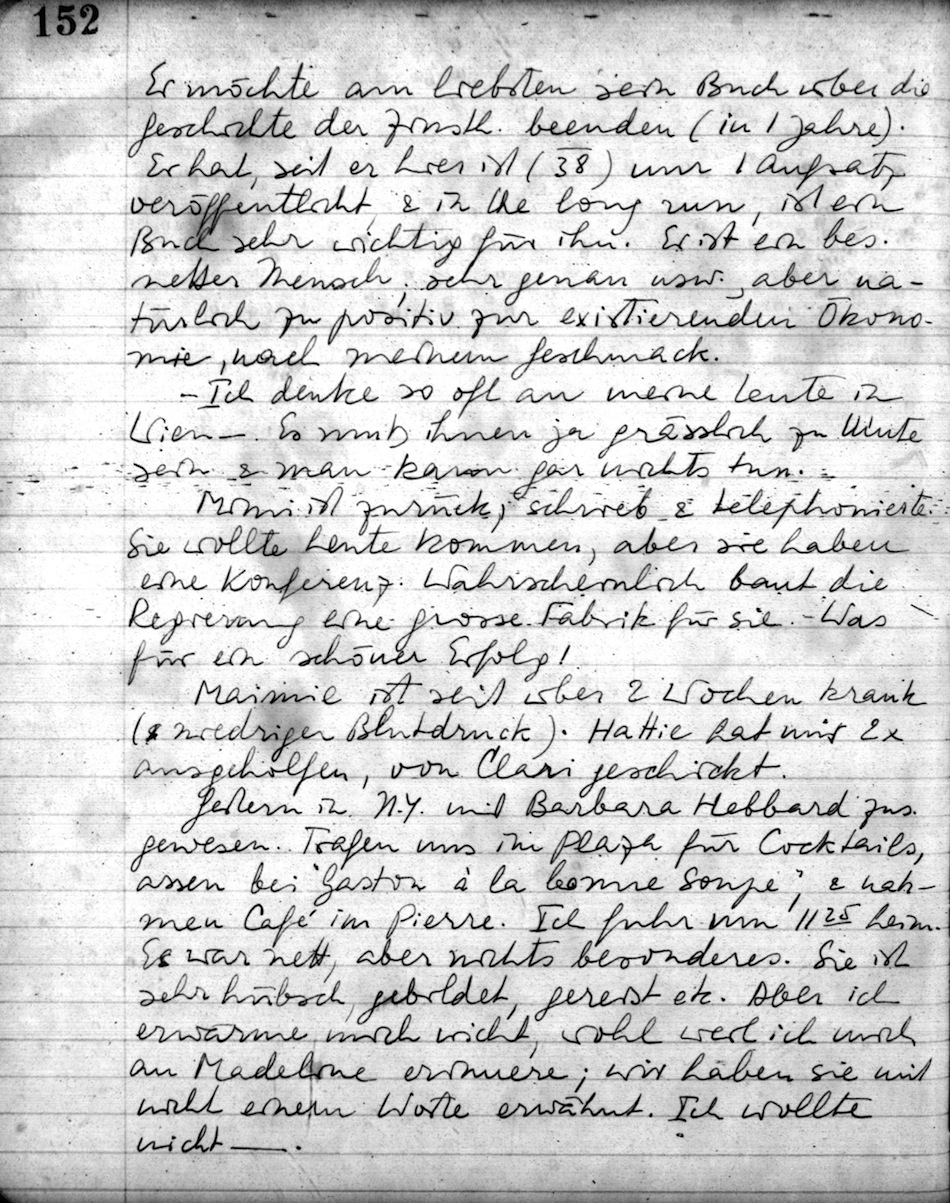 152
Er möchte am liebsten sein Buch über die
Geschichte der Zinsth. beenden (in 1 Jahre).
Er hat, seit er hier ist (38) nur 1 Aufsatz
veröffentlicht, & in the long run, ist ein
Buch sehr wichtig für ihn. Er ist ein bes.
netter Mensch, sehr genau usw., aber na-
türlich zu positiv zur existierenden Ökono-
mie, nach meinem Geschmack.
– Ich denke so oft an meine Leute in
Wien –. Es muß ihnen ja grässlich zu Mute
sein & man kann gar nichts tun. –
Mimi ist zurück, schrieb & telephonierte.
Sie wollte heute kommen, aber sie haben
eine Konferenz. Wahrscheinlich baut die
Regierung eine grosse Fabrik für sie. – Was
für ein schöner Erfolg!
Maimie ist seit über 2 Wochen krank
(niedriger Blutdruck). Hattie hat mir 2x
ausgeholfen, von Clari geschickt.
Gestern in N.Y. mit Barbara Hebbard zus.
gewesen. Trafen uns im Plaza für Cocktails,
assen bei "Gaston à la bonne Soupe", & nah-
men Café im Pierre. Ich fuhr um 11 25 heim.
Es war nett, aber nichts besonderes. Sie ist
sehr hübsch, gebildet, gereist etc. Aber ich
erwärme mich nicht, wohl weil ich mich
an Madeline erinnere; wir haben sie mit
nicht einem Worte erwähnt. Ich wollte
nicht —.